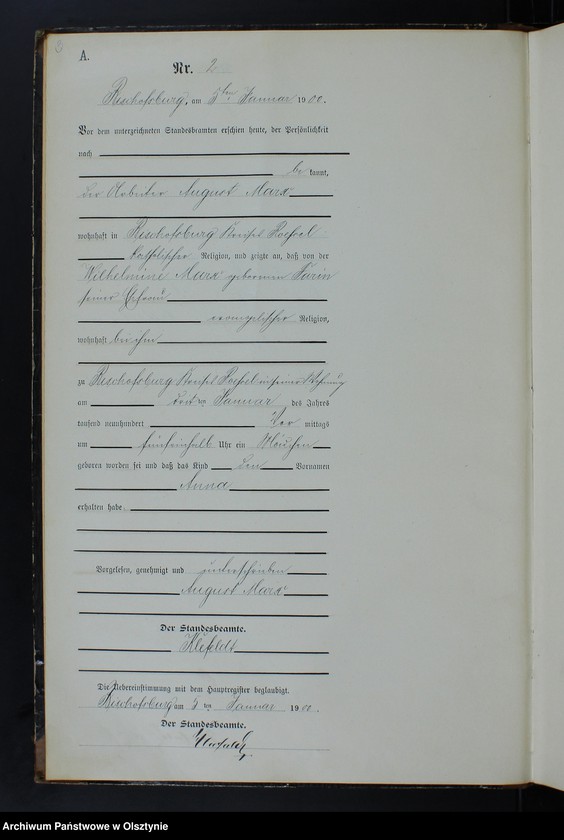 A.
Nr. 2
Bischofsburg, am 5ten Januar 1900.
Vor dem unterzeichneten Standesbeamten erschien heute, der Persönlichkeit
nach
be kannt,
der Arbeiter August Marx
wohnhaft in Bischofsburg Kreises Roessel
katholischer Religion, und zeigte an, daß von der
Wilhelmine Marx geborenen Turin
seiner Ehefrau
evangelischer Religion,
wohnhaft bei ihm
zu Bischofsburg Kreises Roessel in seiner Wohnung
am Januar des Jahres
tausend neunhundert Vor mittags
um fünfeinhalb Uhr ein Mädchen
geboren worden sei und daß das Kind den Vornamen
Anna
erhalten habe.
Vorgelesen, genehmigt und unterschrieben
August Marx
Der Standesbeamte.
Die Uebereinstimmung mit dem Hauptregister beglaubigt.
Bischofsburg am 5ten Januar 1900.
Der Standesbeamte.
Archiwum Państwowe w Olsztynie